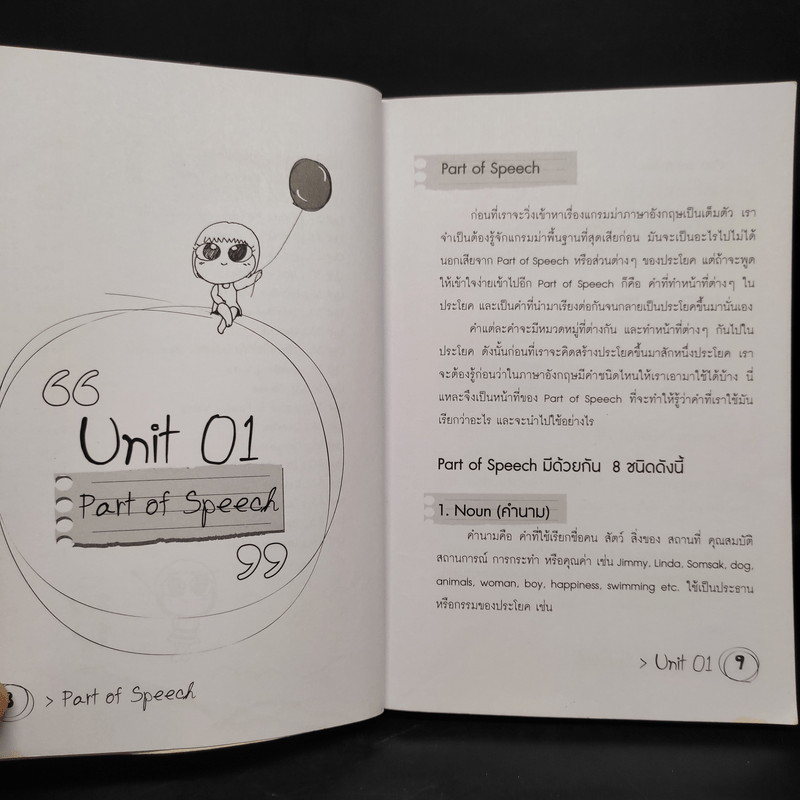 Unit 01
Part of Speech
> Part of Speech
Part of Speech
ก่อนที่เราจะวิ่งเข้าหาเรื่องแกรมม่าภาษาอังกฤษเป็นเต็มตัว เรา
จำเป็นต้องรู้จักแกรมม่าพื้นฐานที่สุดเสียก่อน มันจะเป็นอะไรไปไม่ได้
นอกเสียจาก Part of Speech หรือส่วนต่างๆ ของประโยค แต่ถ้าจะพูด
ให้เข้าใจง่ายเข้าไปอีก Part of Speech ก็คือ คำที่ทำหน้าที่ต่างๆ ใน
ประโยค และเป็นคำที่นำมาเรียงต่อกันจนกลายเป็นประโยคขึ้นมานั่นเอง
คำแต่ละคำจะมีหมวดหมู่ที่ต่างกัน และทำหน้าที่ต่างๆ กันไปใน
ประโยค ดังนั้นก่อนที่เราจะคิดสร้างประโยคขึ้นมาสักหนึ่งประโยค เรา
จะต้องรู้ก่อนว่าในภาษาอังกฤษมีคำชนิดไหนให้เราเอามาใช้ได้บ้าง นี่
แหละจึงเป็นหน้าที่ของ Part of Speech ที่จะทำให้รู้ว่าคำที่เราใช้มัน
เรียกว่าอะไร และจะนำไปใช้อย่างไร
Part of Speech มีด้วยกัน 8 ชนิดดังนี้
1. Noun (คำนาม)
คำนามคือ คำที่ใช้เรียกชื่อคน สัตว์ สิ่งของ สถานที่ คุณสมบัติ
สถานการณ์ การกระทำ หรือคุณค่า เช่น Jimmy, Linda, Somsak, dog,
animals, woman, boy, happiness, swimming etc. ใช้เป็นประธาน
หรือกรรมของประโยค เช่น
> Unit 01 9